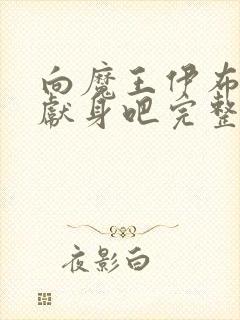 向魔王伊布
献身吧完整
夜影白